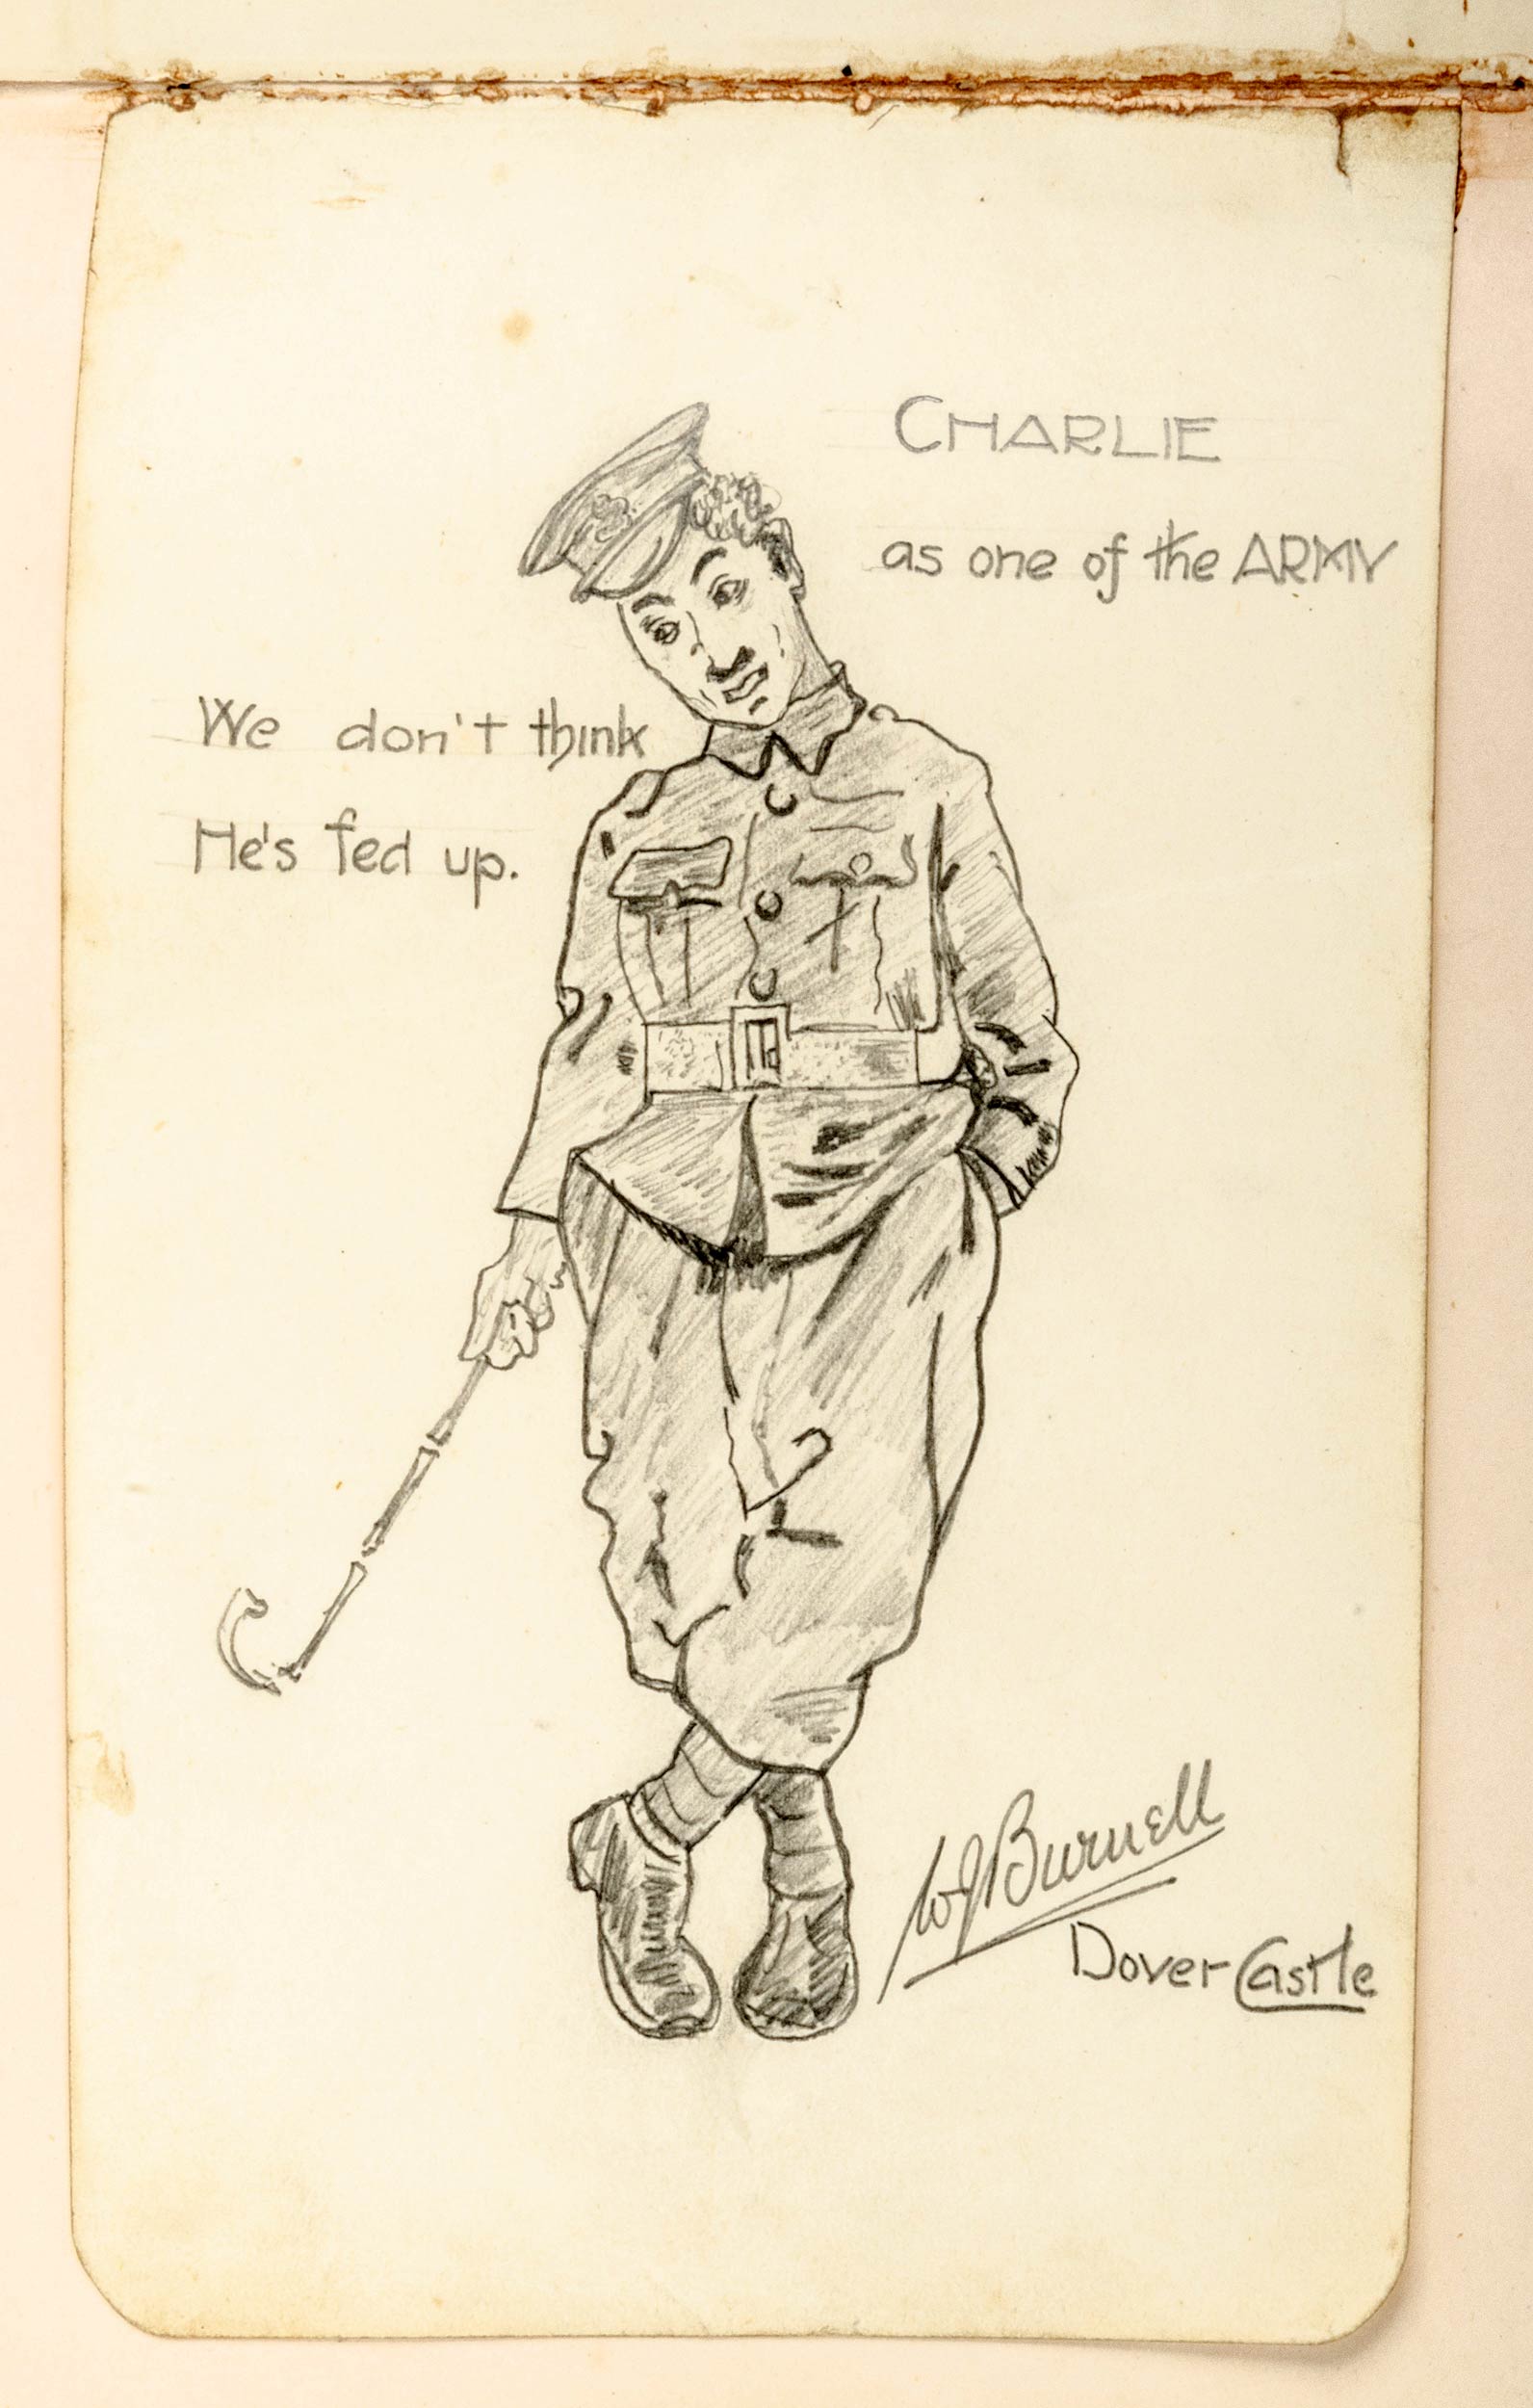 CHARLIE
as one of the ARMY
We don't think
He's fed up.
WJBurnell
Dover Castle